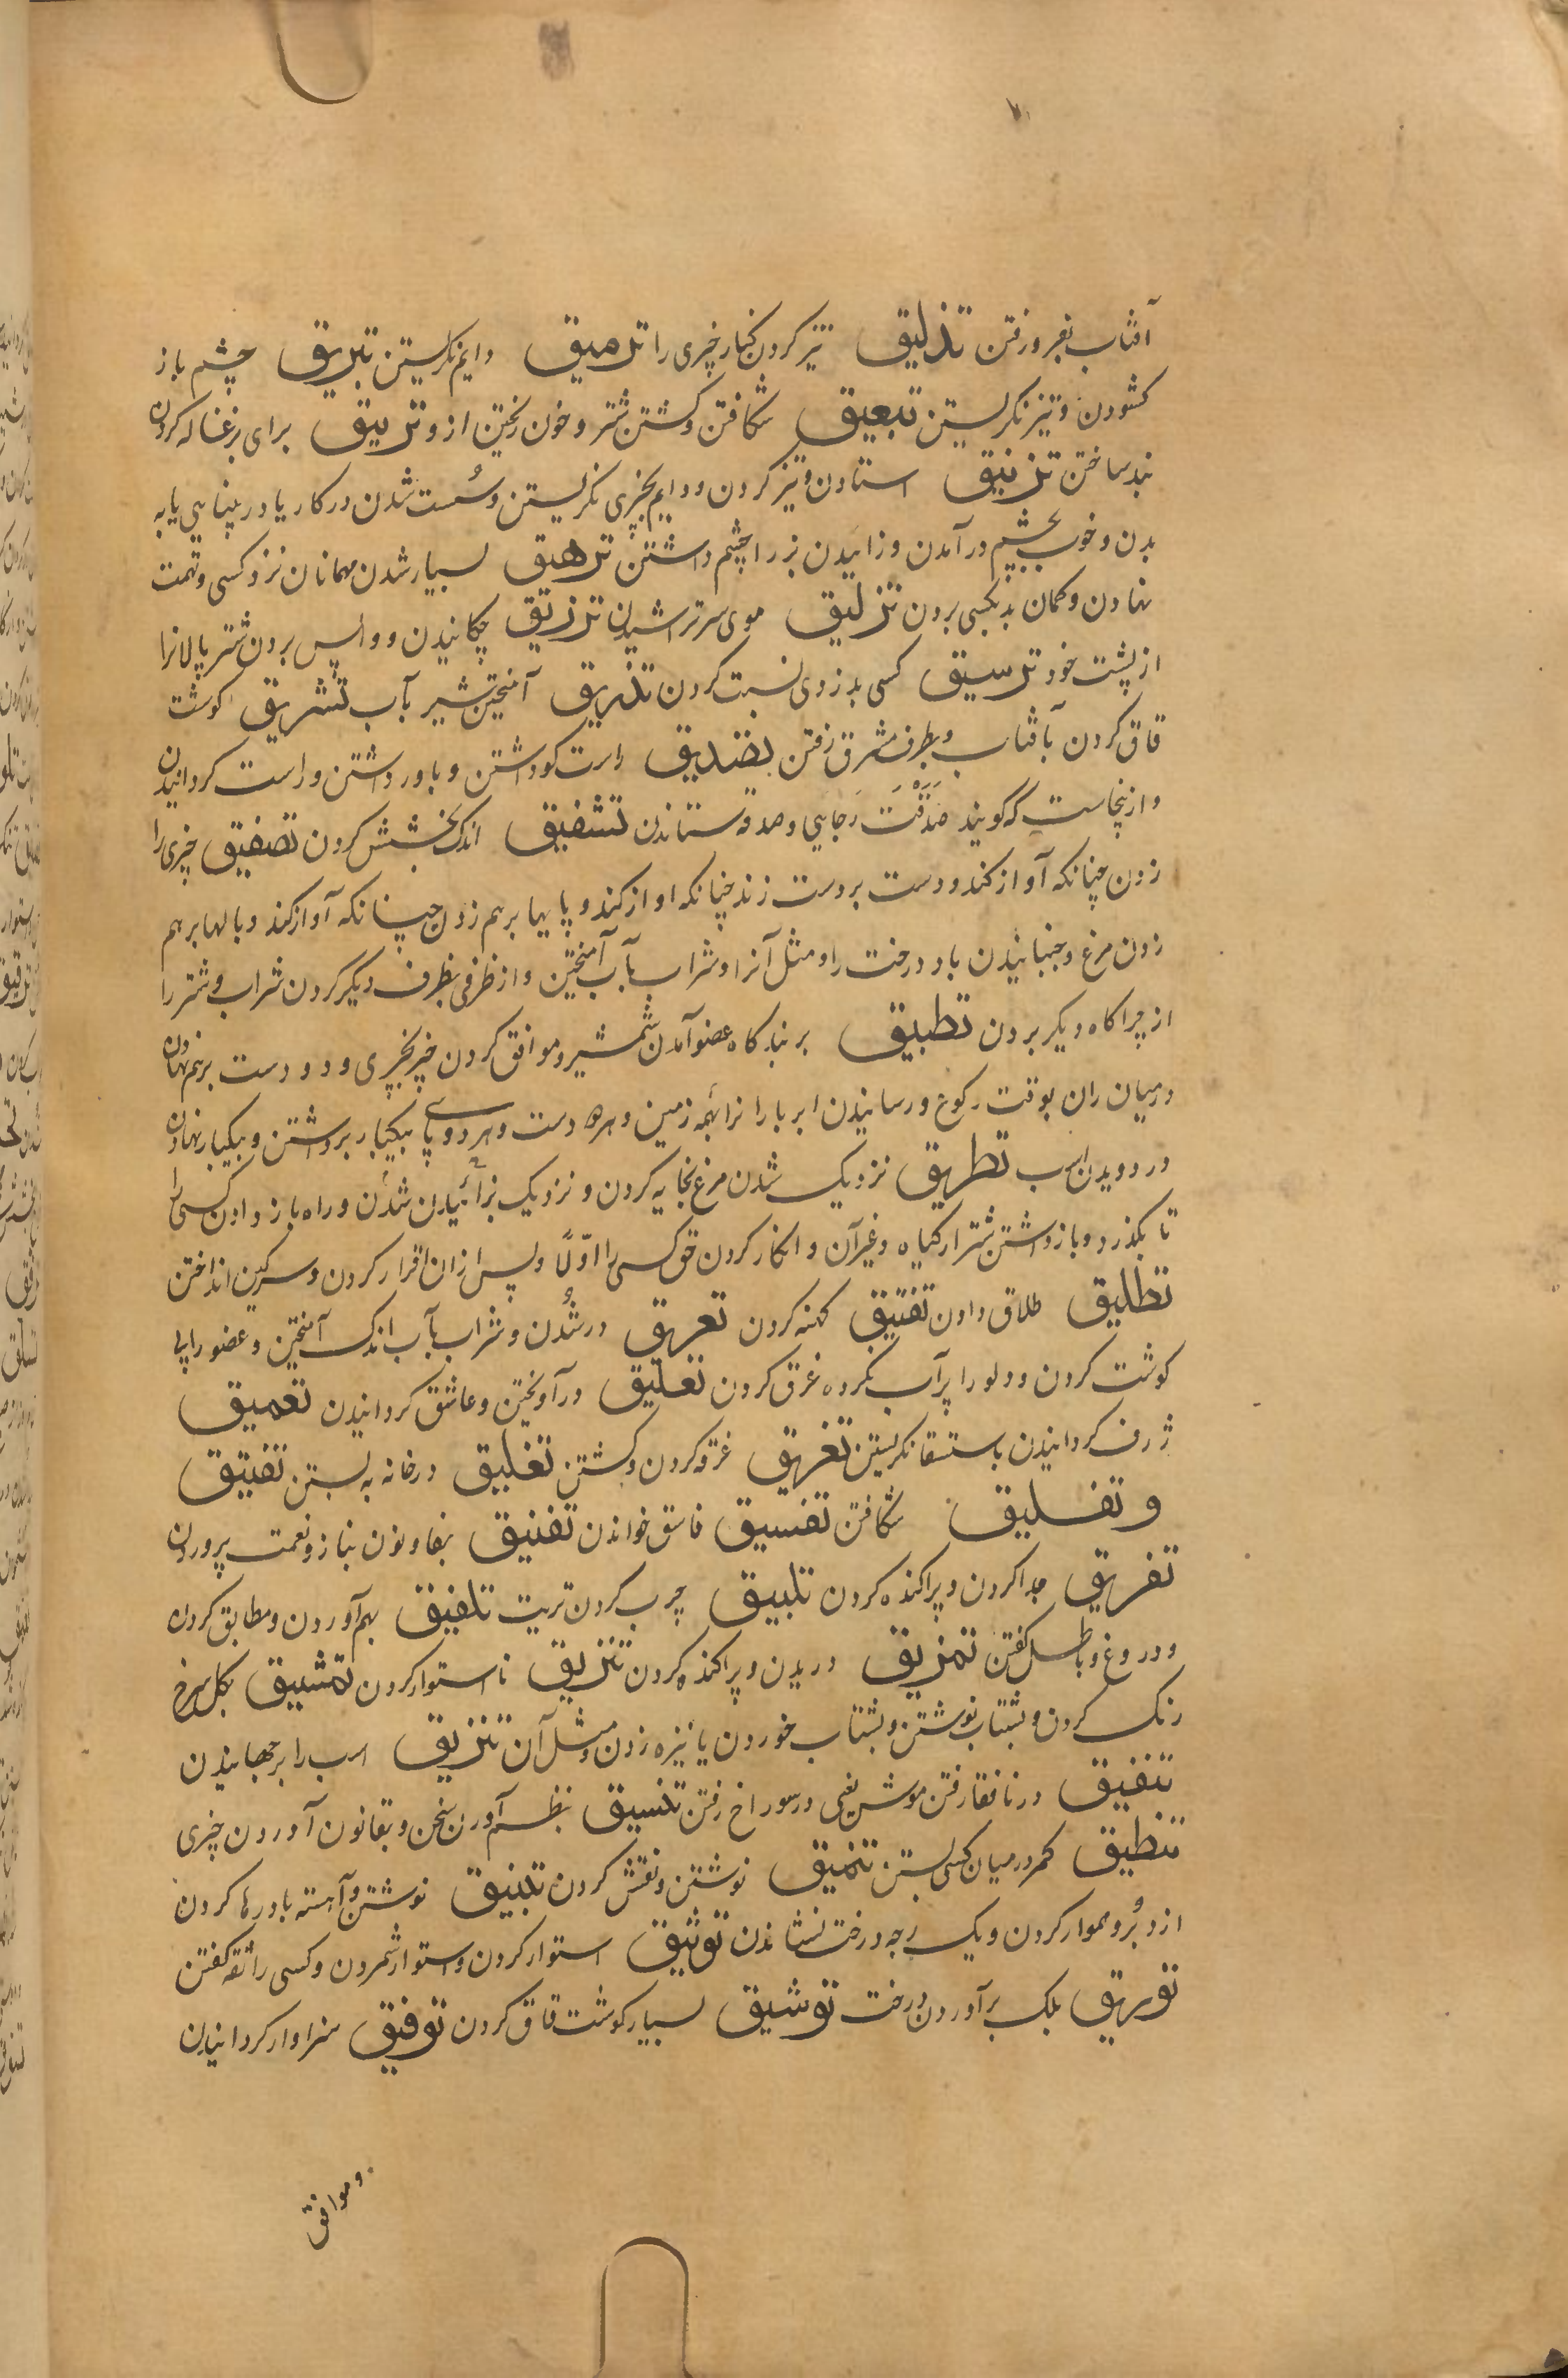 آفتاب بفرو رفتن تذلیق تیز کردن کنار چیزی را ترمیق دایم نکریستن تبریق چشم باز
کشودن و تیز نکریستن تبعیق شکافتن و کشتن شتر و خون ریختن ازو تربیق برای بزغاله کردن
بند ساختن ترنیق استادن و تیز کردن و دایم بچیزی نکریستن و سُست شدن در کار یا در بینایی یا به
بدن و خوب بچشم در آمدن و زاییدن بز را چشم داشتن ترهیق بسیار شدن مهمانان نزد کسی و تهمت
نهادن و کمان بد بکسی بردن تزلیق موی سر تراشیدن تزریق چکانیدن و واپس بردن شتر پالانرا
از پشت خود ترسیق کسی بدزدی نسبت کردن تذریق آمیختن شیر بآب تشریق کوشت
قاق کردن بآفتاب و بطرف مشرق رفتن تصدیق راست کو داشتن و باور داشتن و راست کردانیدن
و ازینجاست که کویند صَدَقَتْ رَجایی و صدقه ستاندن تشفیق اندک بخشش کردن تصفیق چیزی را
زدن چنانکه آواز کند و دست بر دست زند چنانکه اواز کند و پایها بر هم زدن چنانکه آواز کند و بالها بر هم
زدن مرغ و جنبانیدن باد درخت را و مثل آنرا و شراب بآب آمیختن و از ظرفی بظرف دیکر کردن شراب و شتر را
از چراکاه دیکر بردن تطبیق بر بندکاه عضو آمدن شمشیر و موافق کردن چیز بچیزی و دو دست بر هم نهادن
در میان ران بوقت رکوع و رسانیدن ابر بارانرا بهمه زمین و هر دو دست و هر دو پای بیکبار برداشتن و بیکبار نهادن
در دویدن اسب تطریق نزدیک شدن مرغ بخایه کردن و نزدیک بزائیدن شدن و راه باز دادن کسی را
تا بکذرد و باز داشتن شتر از کیاه و غیر آن و انکار کردن حق کسی را اوّلًا و پس از ان اقرار کردن و سرکین انداختن
تطلیق طلاق دادن تعتیق کهنه کردن تعریق در شدن و شراب بآب اندک آمیختن و عضو را بی
کوشت کردن و دلو را پر آب نکرده غرق کردن تعلیق در آویختن و عاشق کردانیدن تعمیق
ژرف کردانیدن باستقصا نکریستن تغریق غرقه کردن و کشتن تغلیق در خانه به بستن تفتیق
و تفلیق شکافتن تفسیق فاسق خواندن تفنیق بفا و نون بناز و نعمت پروردن
تفریق جدا کردن و پراکنده کردن تلبیق چرب کردن تریت تلفیق بهم آوردن و مطابق کردن
و دروغ و باطل کفتن تمزیق دریدن و پراکنده کردن تنزیق نا استوار کردن تمشیق بکل سرخ
رنک کردن و بشتاب نوشتن و بشتاب خوردن یا نیزه زدن و مثل آن تنزیق اسب را بر جهانیدن
تنفیق در نافقا رفتن موش یعنی در سوراخ رفتن تنسیق بنظم آوردن سخن و بقانون آوردن چیزی
تنطیق کمر در میان کسی بستن تنمیق نوشتن و نقش کردن تنبیق نوشتن و آهسته باد رها کردن
از دبُر و هموار کردن و یک رجه درخت نشاندن توثیق استوار کردن و استوار شمردن و کسی را ثقه کفتن
توریق بلک بر آوردن درخت توشیق بسیار کوشت قاق کردن توفیق سزاوار کردانیدن
و موافق